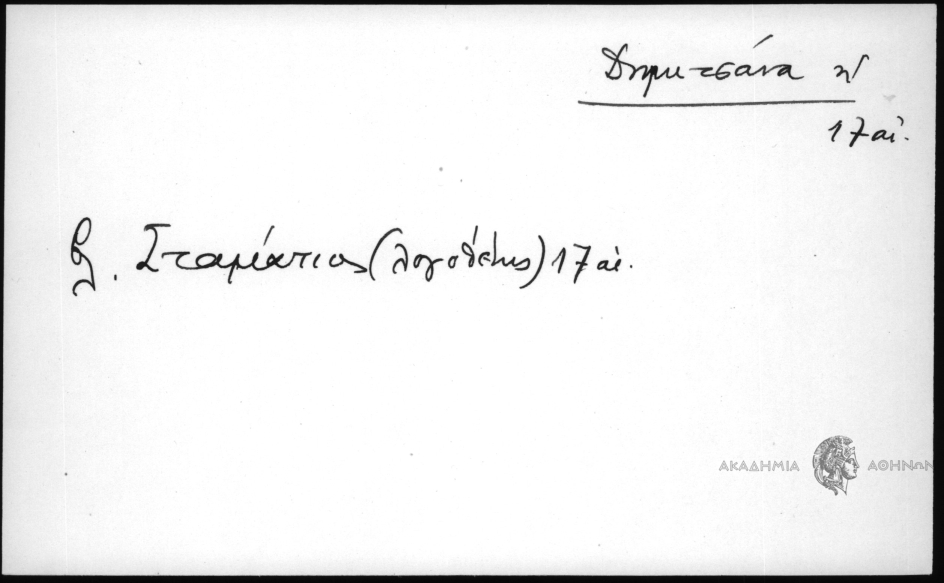 Δημιτσάνα η'
17 αἰ.
β. Σταμάτιος (λογοθέτης) 17 αἰ.
ΑΚΑΔΗΜΙΑ ΑΘΗΝΩΝ